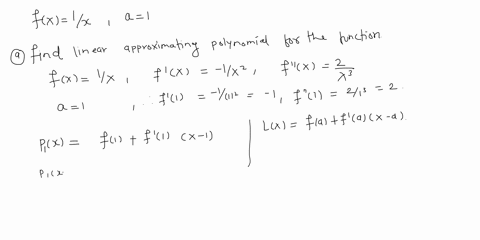 f(x) = 1/x , a = 1
(a) find linear approximating polynomial for the function
f(x) = 1/x , f'(x) = -1/x² , f''(x) = 2/x³
a = 1 , ∴ f'(1) = -1/(1)² = -1, f''(1) = 2/1³ = 2.
P₁(x) = f(1) + f'(1) (x-1)
L(x) = f(a) + f'(a) (x-a).
P₁(x